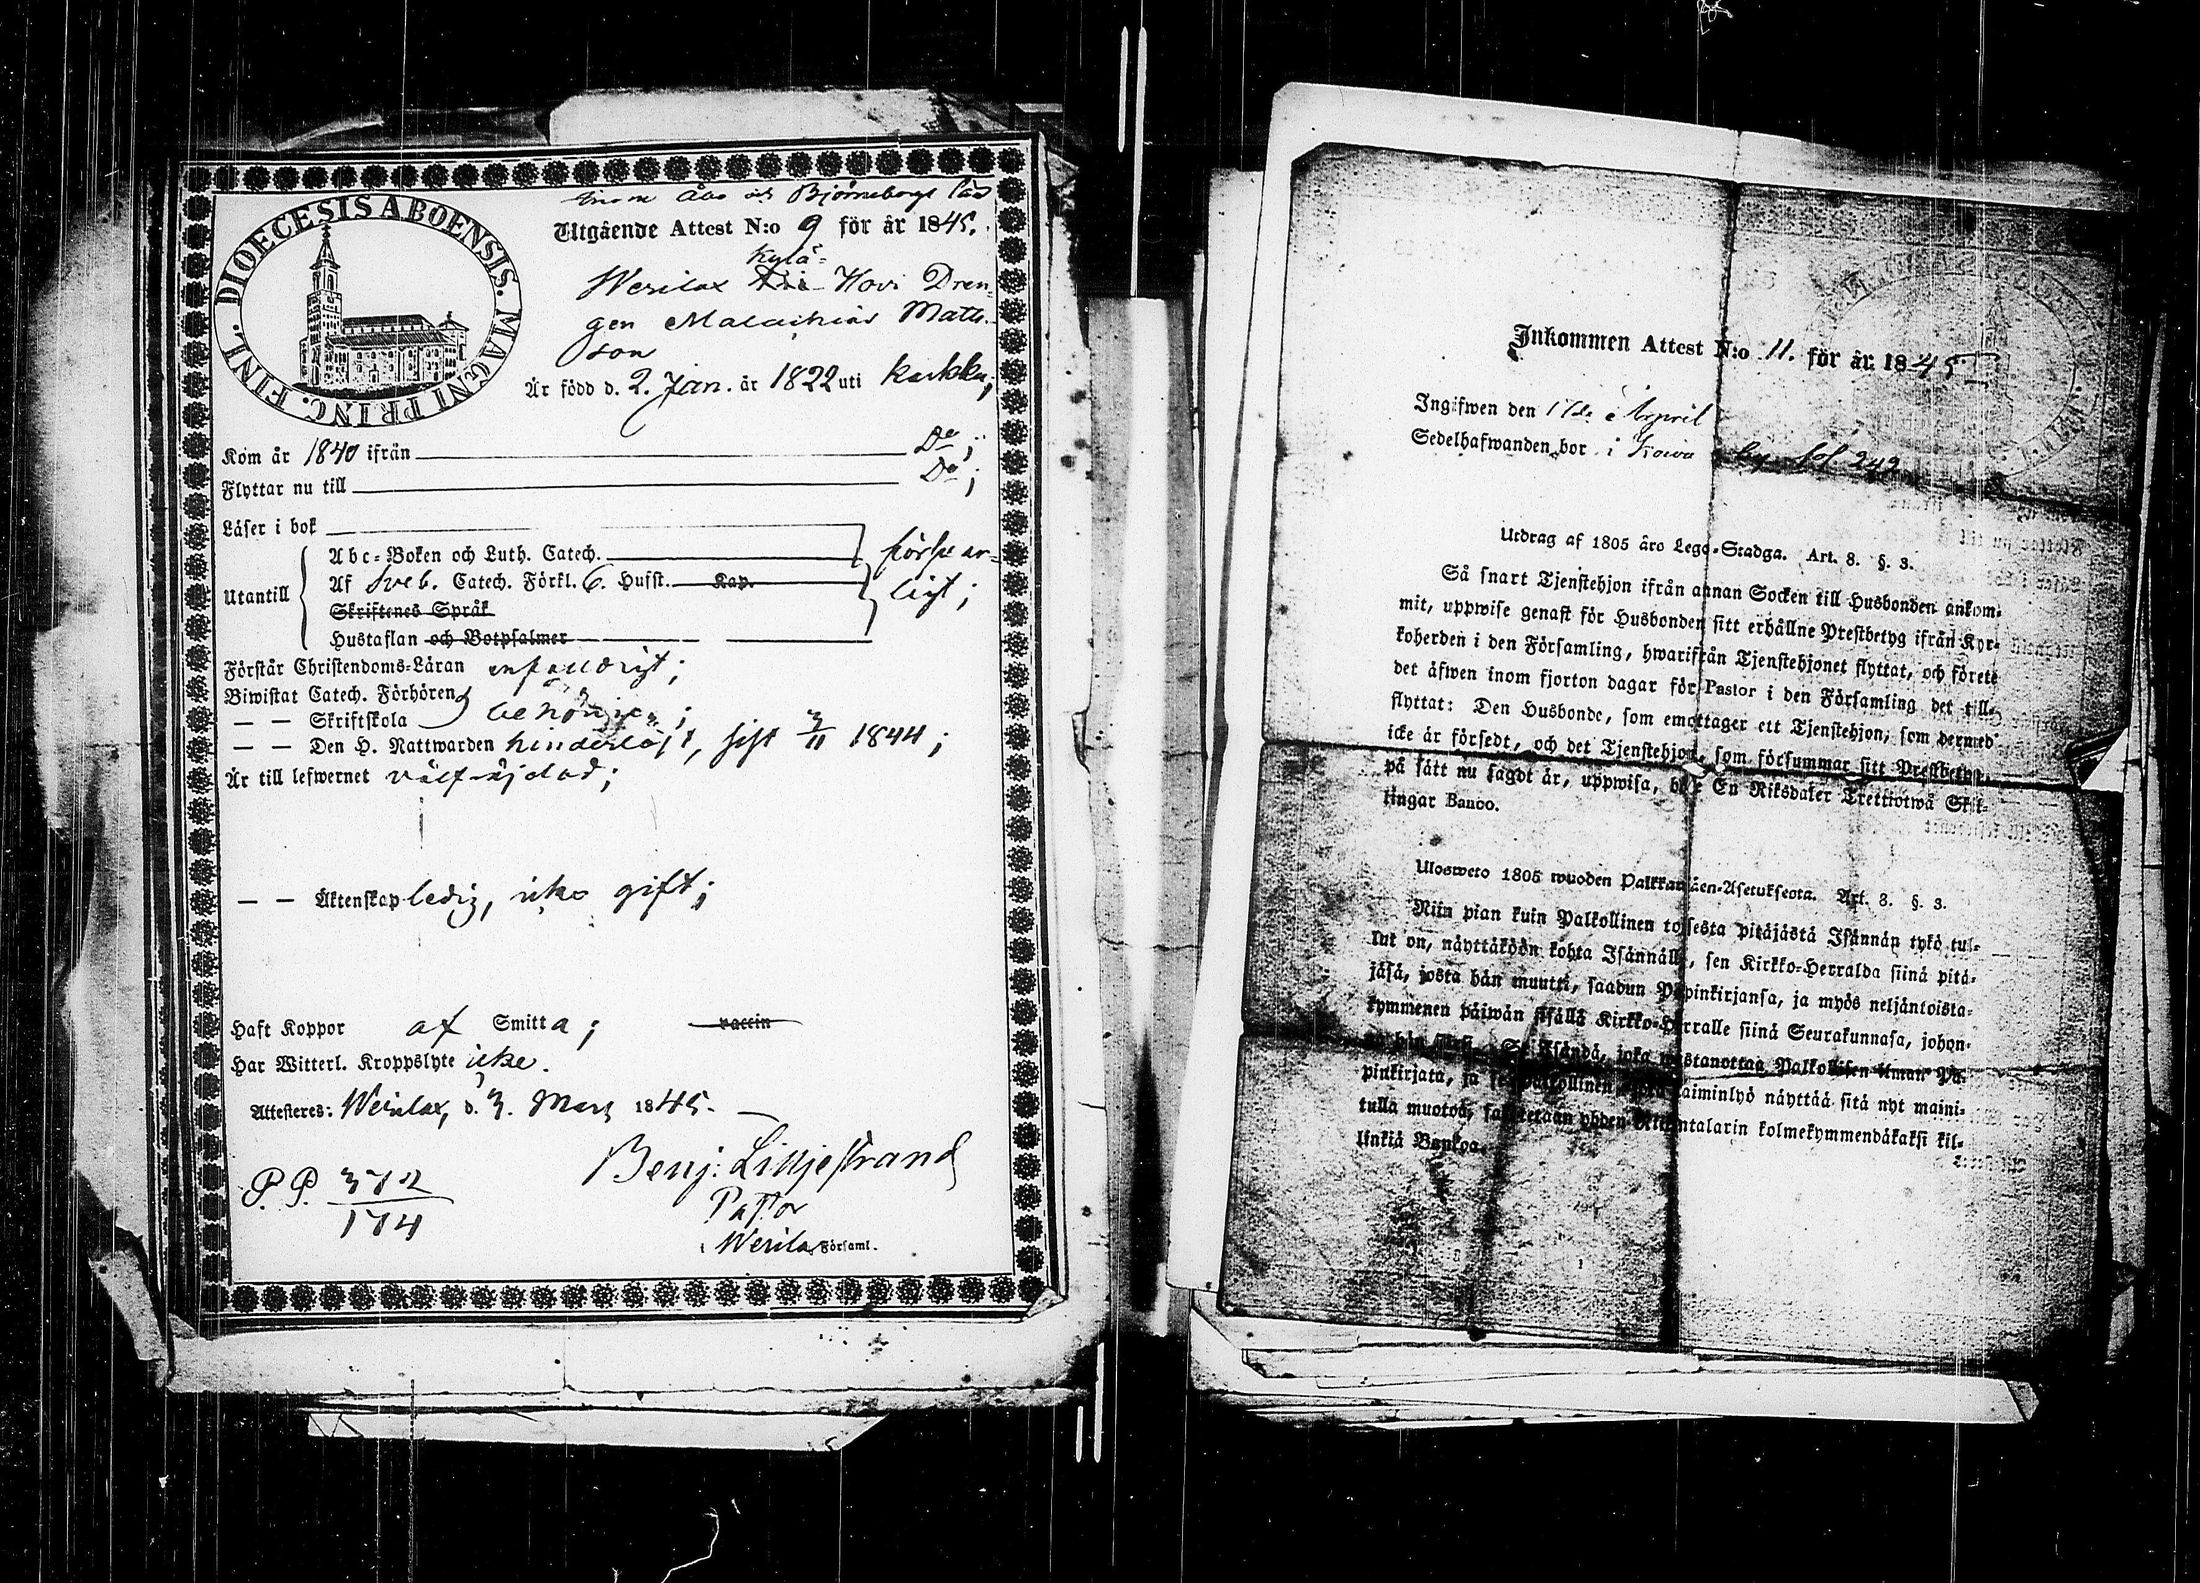 DIOECESIS ABOENSIS. MAGNI PRINC. FINL.
inom Åbo och Björneborgs län
Utgående Attest N:o 9 för år 1845.
Kylä-
Wesilax Hovi Dren-
gen Malachias Matts-
son
Är född d. 2. Jan. år 1822 uti Karkku;
Kom år 1840 ifrån Do;
Flyttar nu till Do;
Läser i bok
Abc-Boken och Luth. Catech. försvar-
Utantill Af Sveb. Catech. Förkl. 6. Hufst. Kap. ligt;
Skriftenes Språk
Hustaflan och Botpsalmer
Förstår Christendoms-Läran enfaldigt;
Biwistat Catech. Förhören
— — Skriftskola behörigen;
— — Den H. Nattwarden hinderlöst, sist 3/11 1844;
Är till lefwernet wälfrejdad;
— — Äktenskap ledig, icke gift;
Haft Koppor af Smitta; vaccin
Har Witterl. Kroppslyte icke.
Attesteres: Wesilax, d. 3. Mars 1845.
Benj. Liljestrand
P.P. 372/174
Pastor
i Wesilax Församl.
Inkommen Attest N:o 11. för år 1845
Ingifwen den 17de April
Sedelhafwanden bor i by fol 242
Utdrag af 1805 års Lego-Stadga. Art. 8. §. 3.
Så snart Tjenstehjon ifrån annan Socken till Husbonden ankom-
mit, uppwise genast för Husbonden sitt erhållne Prestbetyg ifrån Kyr-
koherden i den Församling, hwarifrån Tjenstehjonet flyttat, och förete
det äfwen inom fjorton dagar för Pastor i den Församling det till-
flyttat: Den Husbonde, som emottager ett Tjenstehjon, som dermed
icke är försedt, och det Tjenstehjon, som försummar sitt Prestbetyg,
på sätt nu sagdt är, uppwisa, böte En Riksdaler Trettiotwå Skil-
lingar Banco.
Ulosweto 1805 wuoden Palkkawäen-Asetuksesta. Art. 8. §. 3.
Niin pian kuin Palkollinen toisesta pitäjästä Isännän tykö tul-
lut on, näyttäköön kohta Isännälle, sen Kirkko-Herralda siinä pitä-
jäsä, josta hän muutti, saadun Papinkirjansa, ja myös neljäntoista-
kymmenen päiwän sisällä Kirkko-Herralle siinä Seurakunnasa, johon-
ka hän Se Isändä, joka wastanottaa Palkollisen ilman Pa-
pinkirjata, ja se Palkollinen joka laiminlyö näyttää sitä nyt maini-
tulla muotoa, sakotetaan yhden Riksintalarin kolmekymmendäkaksi kil-
linkiä Bankoa.